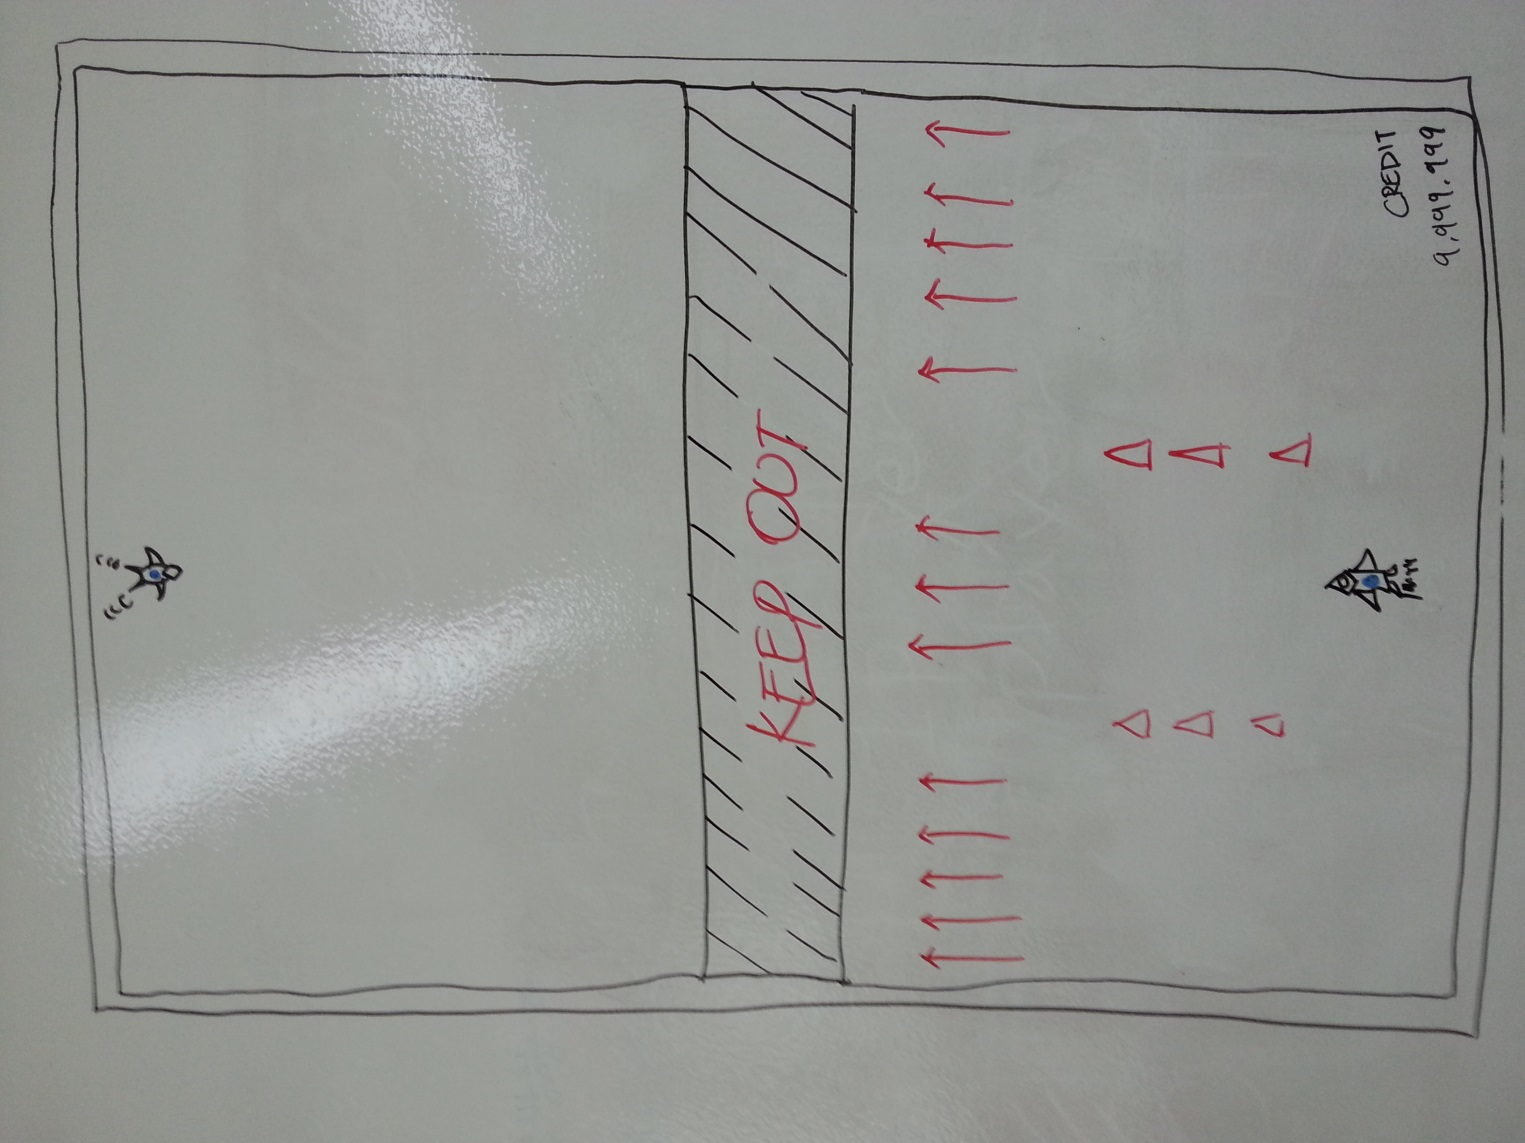 KEEP OUT
CREDIT
9,999,999